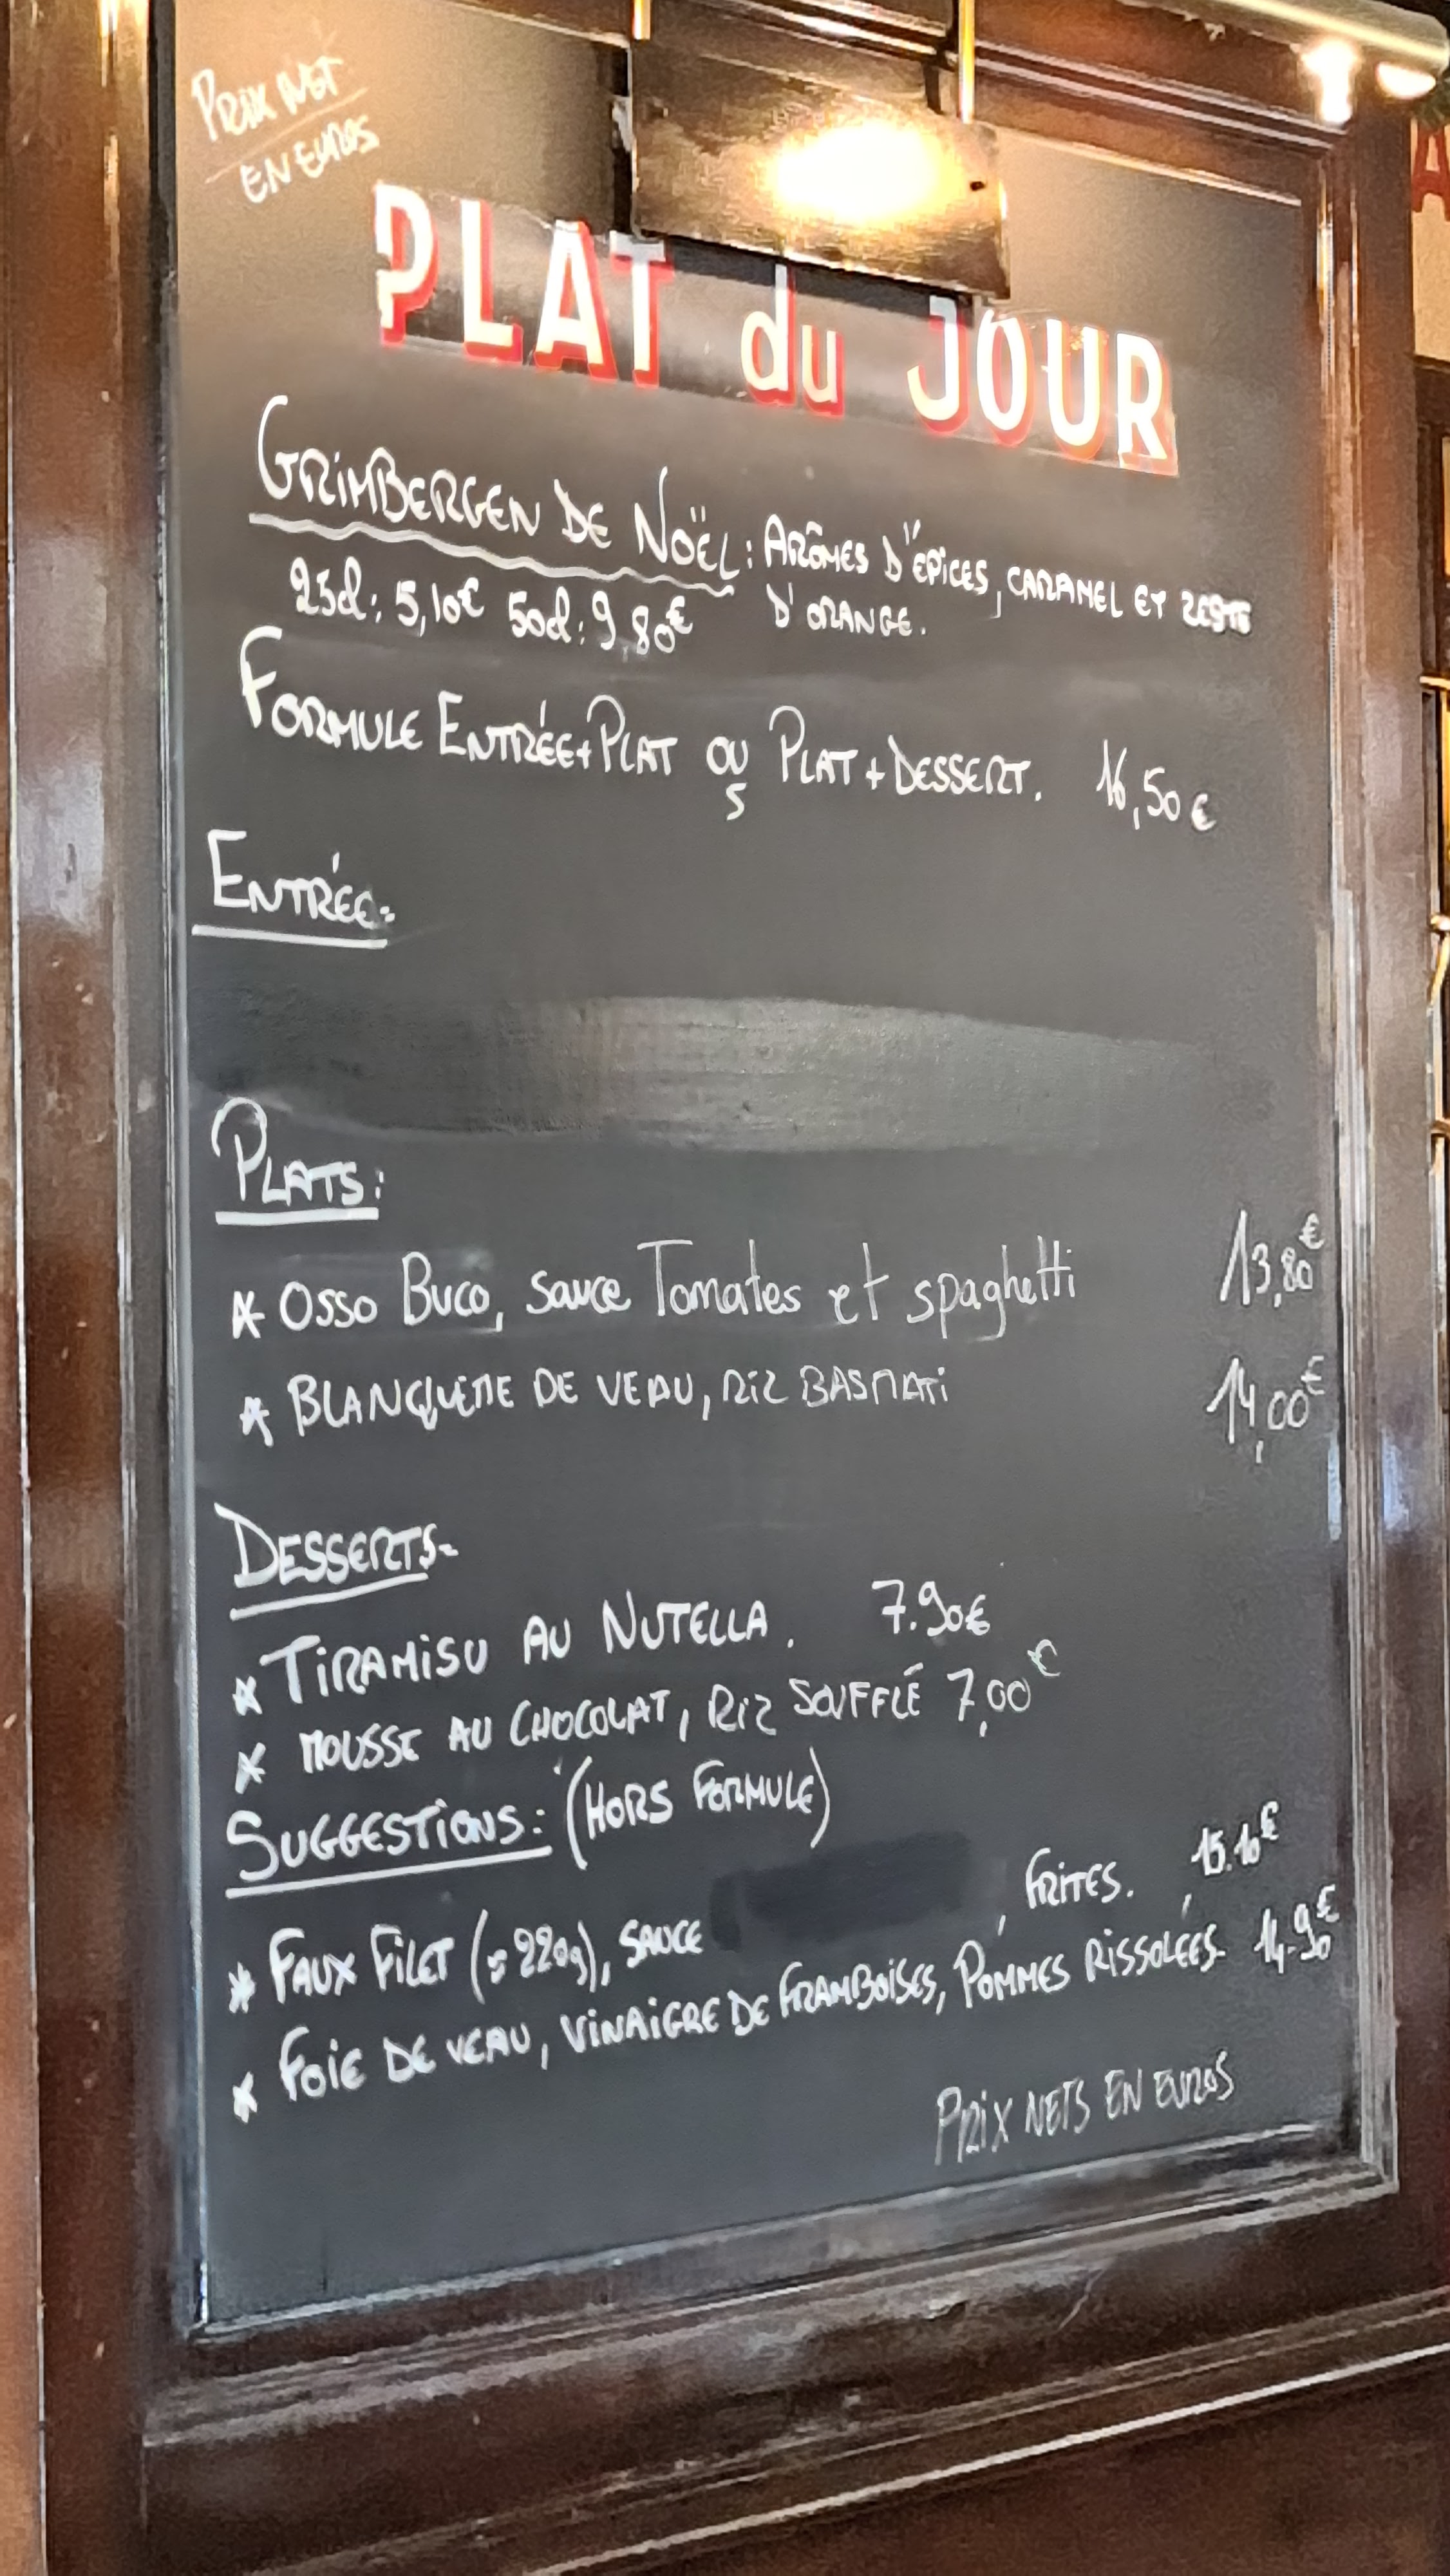 PRIX NET
EN EUROS
PLAT du JOUR
GRIMBERGEN DE NOËL: ARÔMES D'ÉPICES, CARAMEL ET ZESTE
25cl: 5,10€ 50cl: 9,80€ D'ORANGE.
FORMULE ENTRÉE+PLAT OU PLAT+DESSERT. 16,50€
ENTRÉE:
PLATS:
* OSSO BUCO, sauce Tomates et spaghetti 13,80€
* BLANQUETTE DE VEAU, RIZ BASMATI 14,00€
DESSERTS-
* TIRAMISU AU NUTELLA. 7.90€
* MOUSSE AU CHOCOLAT, RIZ SOUFFLÉ 7,00€
SUGGESTIONS: (HORS FORMULE)
* FAUX FILET (≃220g), SAUCE , FRITES. 15.10€
* FOIE DE VEAU, VINAIGRE DE FRAMBOISES, POMMES RISSOLÉES- 14.90€
PRIX NETS EN EUROS